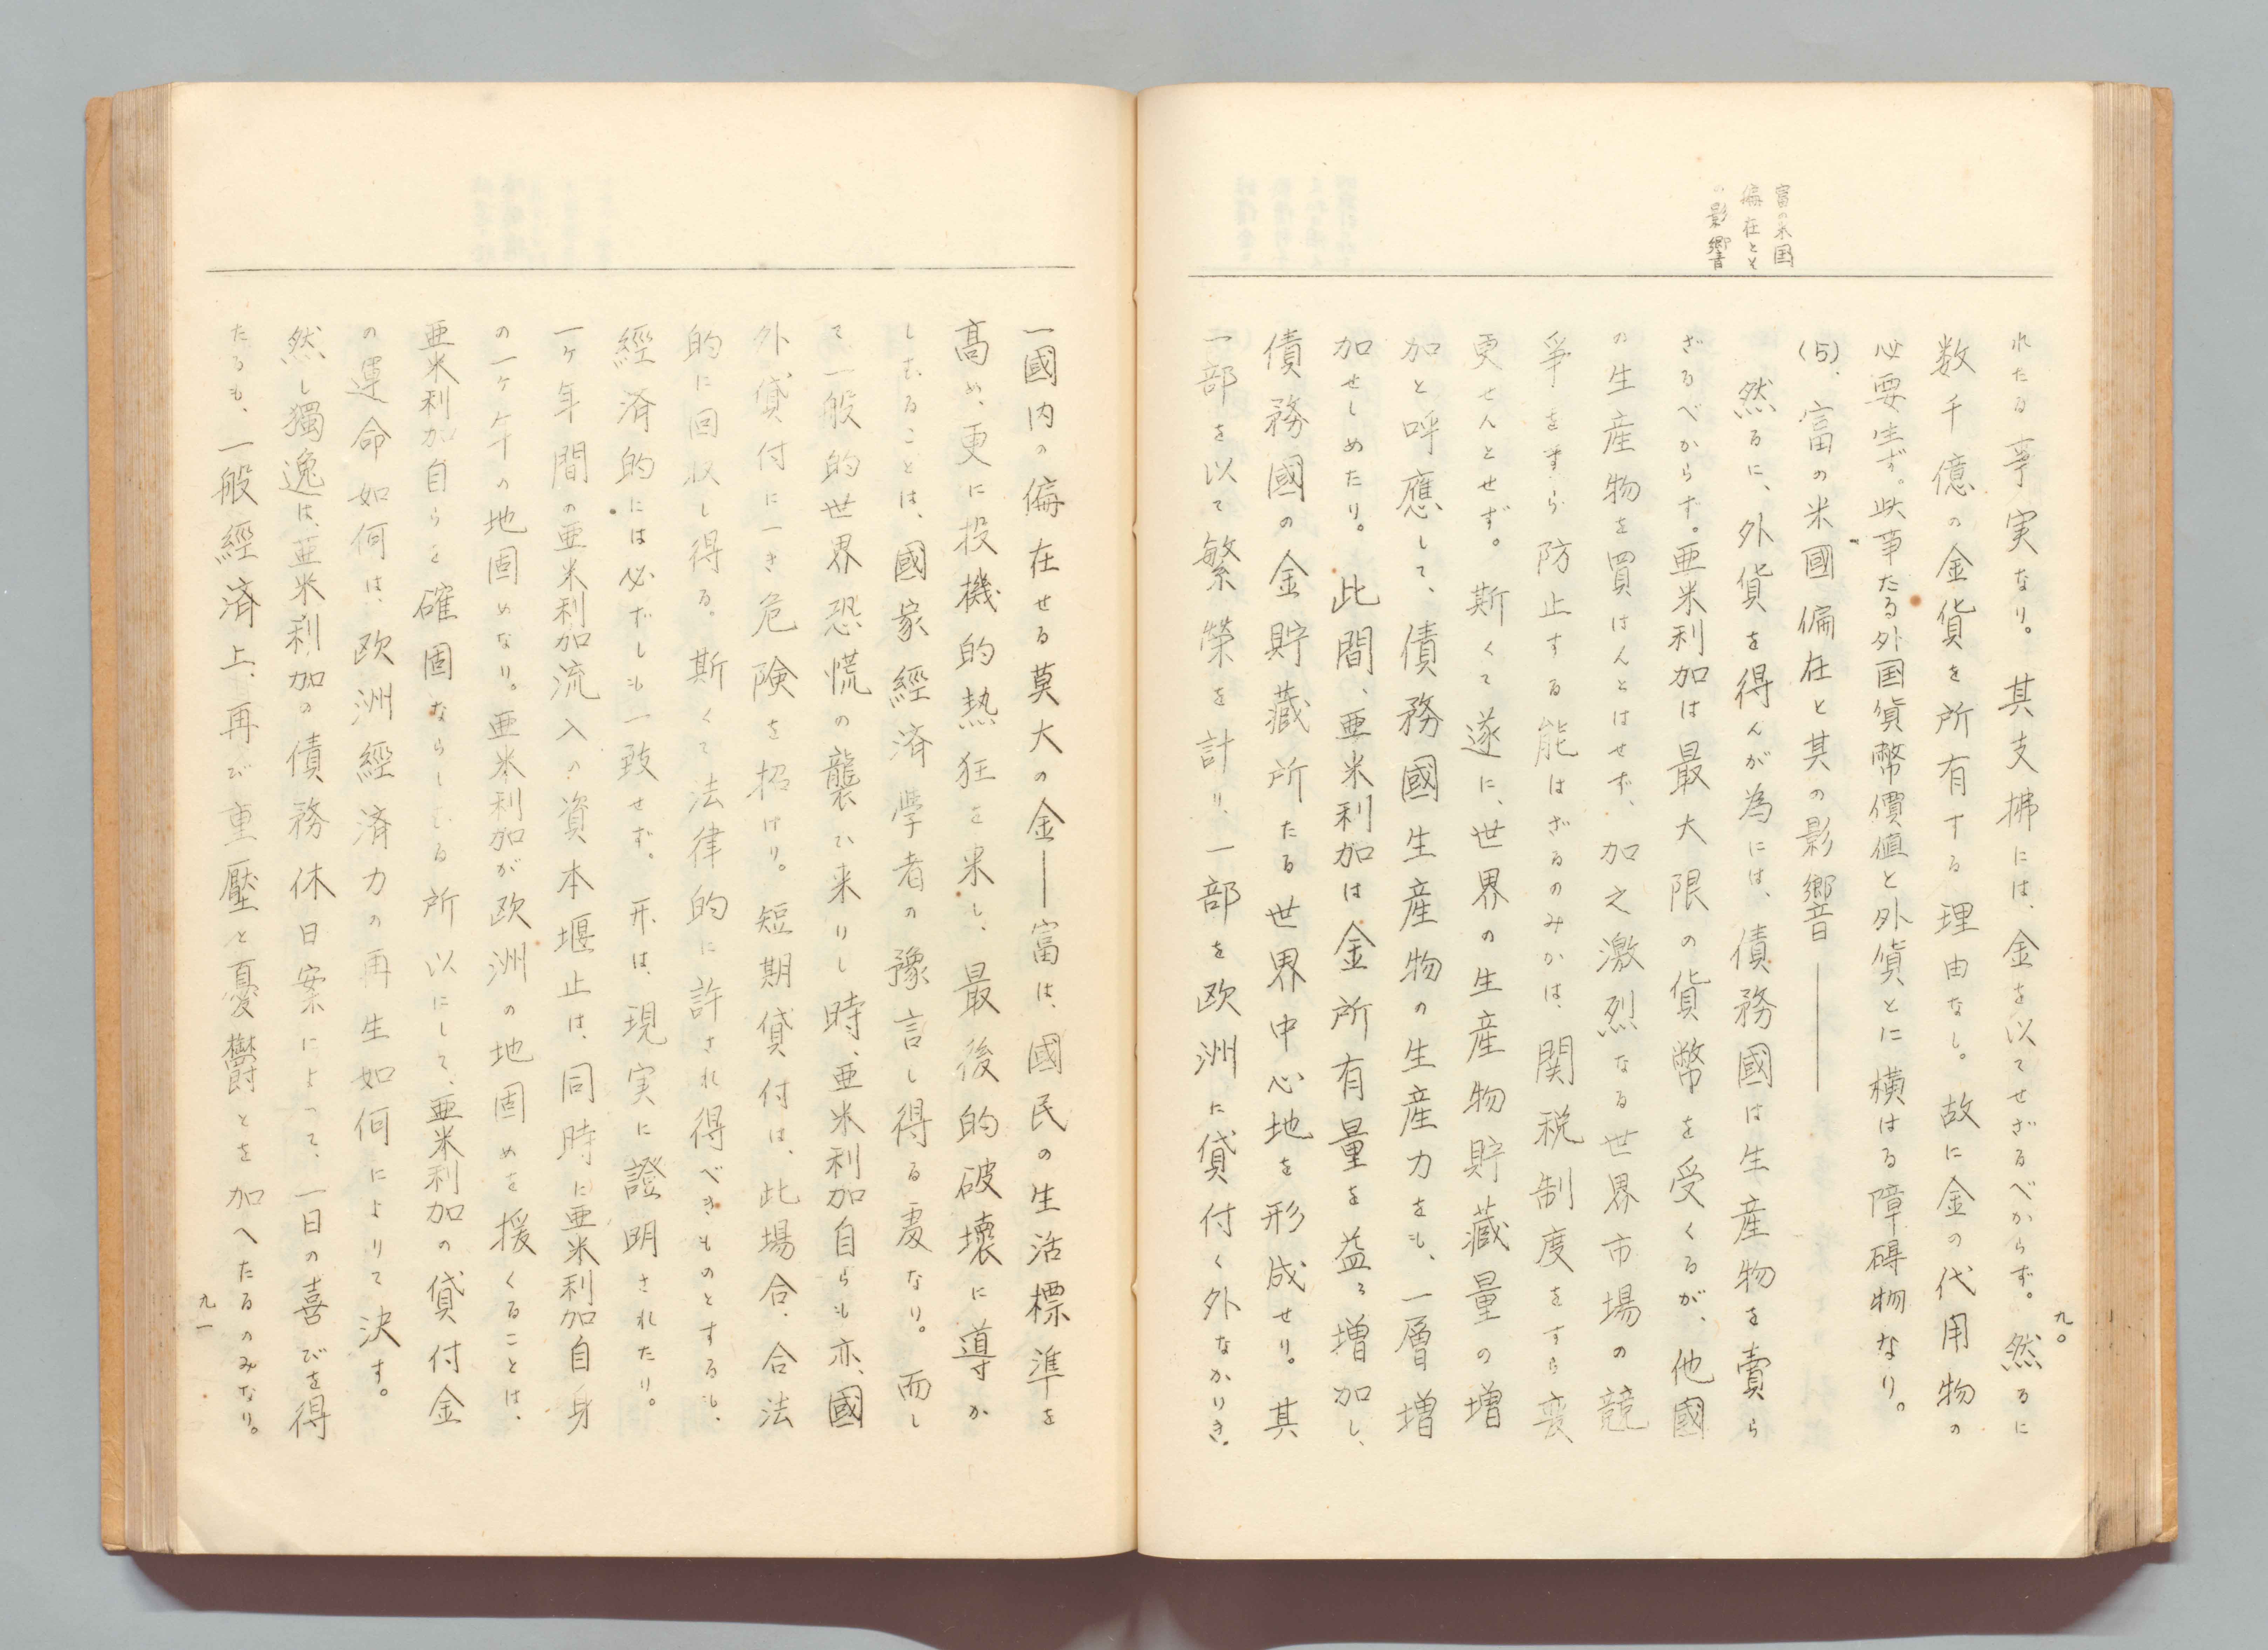 九〇
富の米国
偏在とそ
の影響
れたる事実なり。其支拂には、金を以てせざるべからず。然るに
数千億の金貨を所有する理由なし。故に金の代用物の
必要生ず。此事たる外国貨幣價値と外貨とに横はる障碍物なり。
(5)、富の米國偏在と其の影響――
然るに、外貨を得んが為には、債務國は生産物を賣ら
ざるべからず。亜米利加は最大限の貨幣を受くるが、他國
の生産物を買はんとはせず、加之激烈なる世界市場の競
爭をすら防止する能はざるのみかは、関税制度をすら変
更せんとせず。斯くて遂に、世界の生産物貯蔵量の増
加と呼應して、債務國生産物の生産力をも、一層増
加せしめたり。此間、亜米利加は金所有量を益々増加し、
債務國の金貯蔵所たる世界中心地を形成せり。其
一部を以て繁榮を計り、一部を欧洲に貸付く外なかりき。
一國内の偏在せる莫大の金――富は、國民の生活標準を
高め、更に投機的熱狂を来し、最後的破壊に導か
しむることは、國家經済學者の豫言し得る処なり。而し
て、一般的世界恐慌の襲ひ来りし時、亜米利加自らも亦、國
外貸付に一き危険を招けり。短期貸付は、此場合、合法
的に回収し得る。斯くて法律的に許され得べきものとするも、
經済的には必ずしも一致せず。形は、現実に證明されたり。
一ヶ年間の亜米利加流入の資本堰止は、同時に亜米利加自身
の一ヶ年の地固めなり。亜米利加が欧洲の地固めを援くることは、
亜米利加自らを確固ならしむる所以にして、亜米利加の貸付金
の運命如何は、欧洲經済力の再生如何によりて決す。
然し獨逸は、亜米利加の債務休日案によって、一日の喜びを得
たるも、一般經済上、再び重壓と憂鬱とを加へたるのみなり。
九一